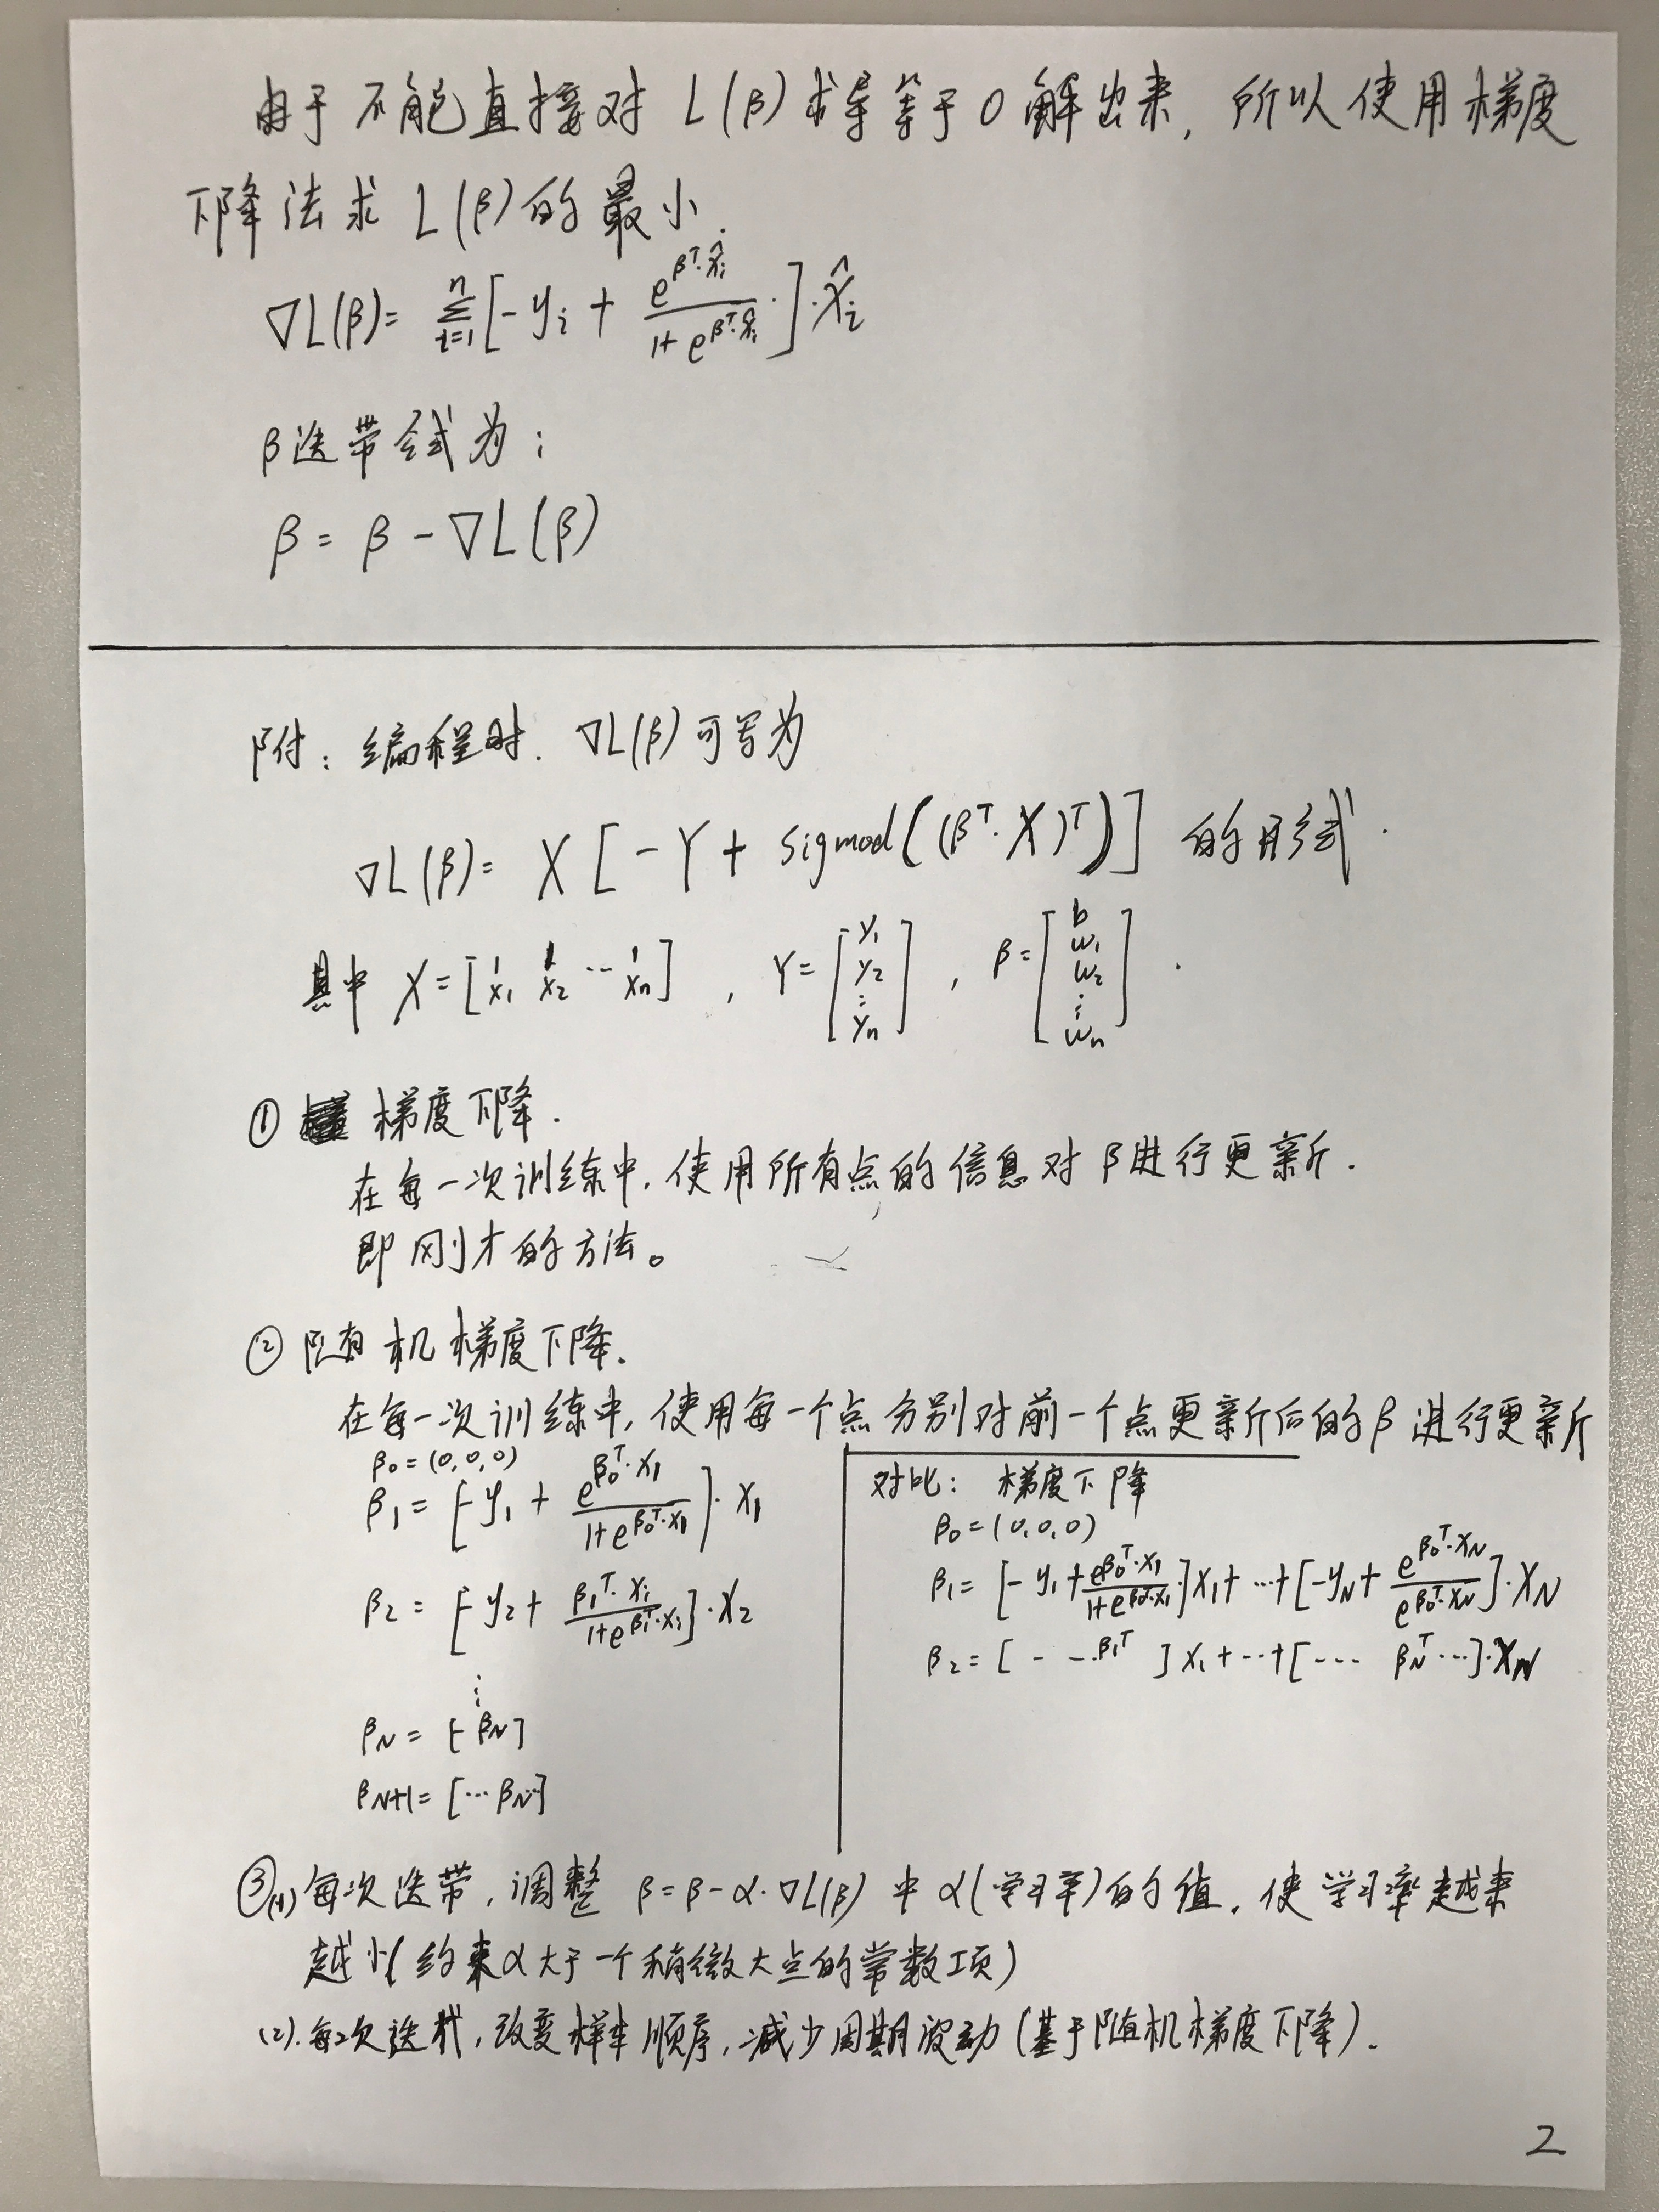 由于不能直接对 L(β) 求导等于0解出来, 所以使用梯度
下降法求 L(β) 的最小.
∇L(β)= Σ_{i=1}^{n} [-y_i + e^{β^T·x̂_i} / (1+e^{β^T·x̂_i})]·x̂_i
β迭带公式为:
β = β - ∇L(β)
附: 编程时. ∇L(β)可写为
∇L(β)= X [-Y + sigmod((β^T·X)^T)] 的形式.
其中 X=[1 1 … 1; x_1 x_2 … x_n], Y=[y_1 y_2 ⋮ y_n], β=[b w_1 w_2 ⋮ w_n].
① 梯度下降.
在每一次训练中, 使用所有点的信息对β进行更新.
即刚才的方法。
② 随机梯度下降.
在每一次训练中, 使用每一个点分别对前一个点更新后的β进行更新
β_0=(0,0,0)
β_1 = [-y_1 + e^{β_0^T·x_1} / (1+e^{β_0^T·x_1})]·x_1
β_2 = [-y_2 + β_1^T·x_i / (1+e^{β_1^T·x_i})]·x_2
⋮
β_N = [- β_N]
β_{N+1} = [… β_N…]
对比: 梯度下降
β_0=(0,0,0)
β_1= [-y_1 + e^{β_0^T·x_1} / (1+e^{β_0^T·x_1})·]x_1+ …+[-y_N + e^{β_0^T·x_N} / e^{β_0^T·x_N}]·x_N
β_2= [- -..β_1^T ]x_1+…+[--- β_N^T …]·x_N
③(1) 每次迭带, 调整 β=β-α·∇L(β) 中 α(学习率)的值, 使学习率越来
越小(约束α大于一个稍微大点的常数项)
(2). 每次迭代, 改变样本顺序, 减少周期波动(基于随机梯度下降).
2